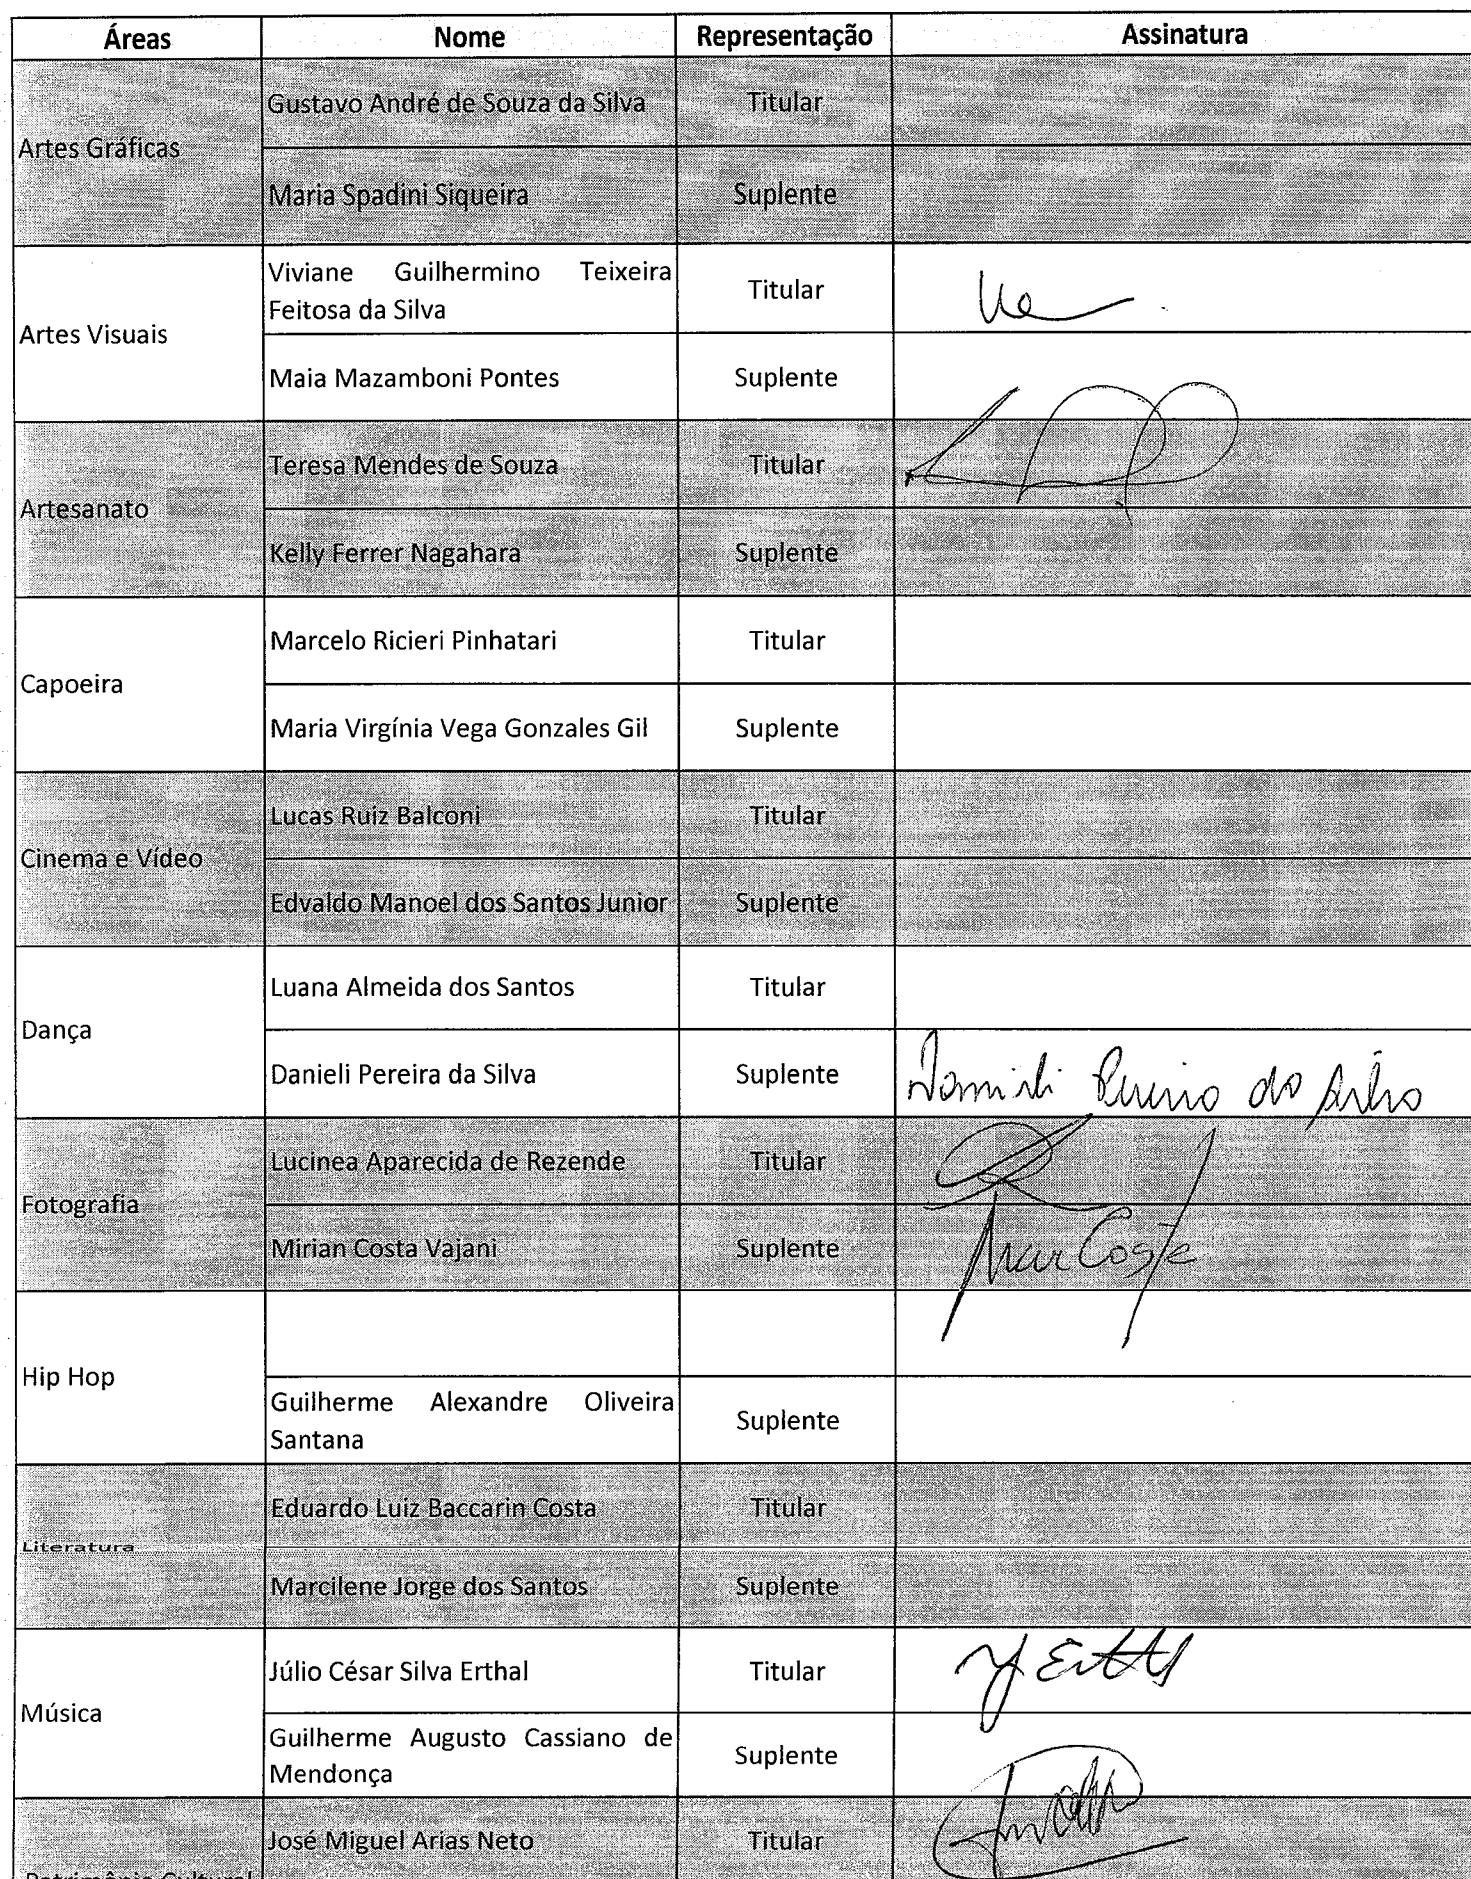 Áreas Nome Representação Assinatura
Artes Gráficas
Gustavo André de Souza da Silva Titular
Maria Spadini Siqueira Suplente
Artes Visuais
Viviane Guilhermino Teixeira
Feitosa da Silva
Titular
Maia Mazamboni Pontes Suplente
Artesanato
Teresa Mendes de Souza Titular
Kelly Ferrer Nagahara Suplente
Capoeira
Marcelo Ricieri Pinhatari Titular
Maria Virgínia Vega Gonzales Gil Suplente
Cinema e Vídeo
Lucas Ruiz Balconi Titular
Edvaldo Manoel dos Santos Junior Suplente
Dança
Luana Almeida dos Santos Titular
Danieli Pereira da Silva Suplente Danieli Pereira da Silva
Fotografia
Lucinea Aparecida de Rezende Titular
Mirian Costa Vajani Suplente Costa
Hip Hop
Guilherme Alexandre Oliveira
Santana
Suplente
Literatura
Eduardo Luiz Baccarin Costa Titular
Marcilene Jorge dos Santos Suplente
Música
Júlio César Silva Erthal Titular
Guilherme Augusto Cassiano de
Mendonça
Suplente
José Miguel Arias Neto Titular
Patrimônio Cultural